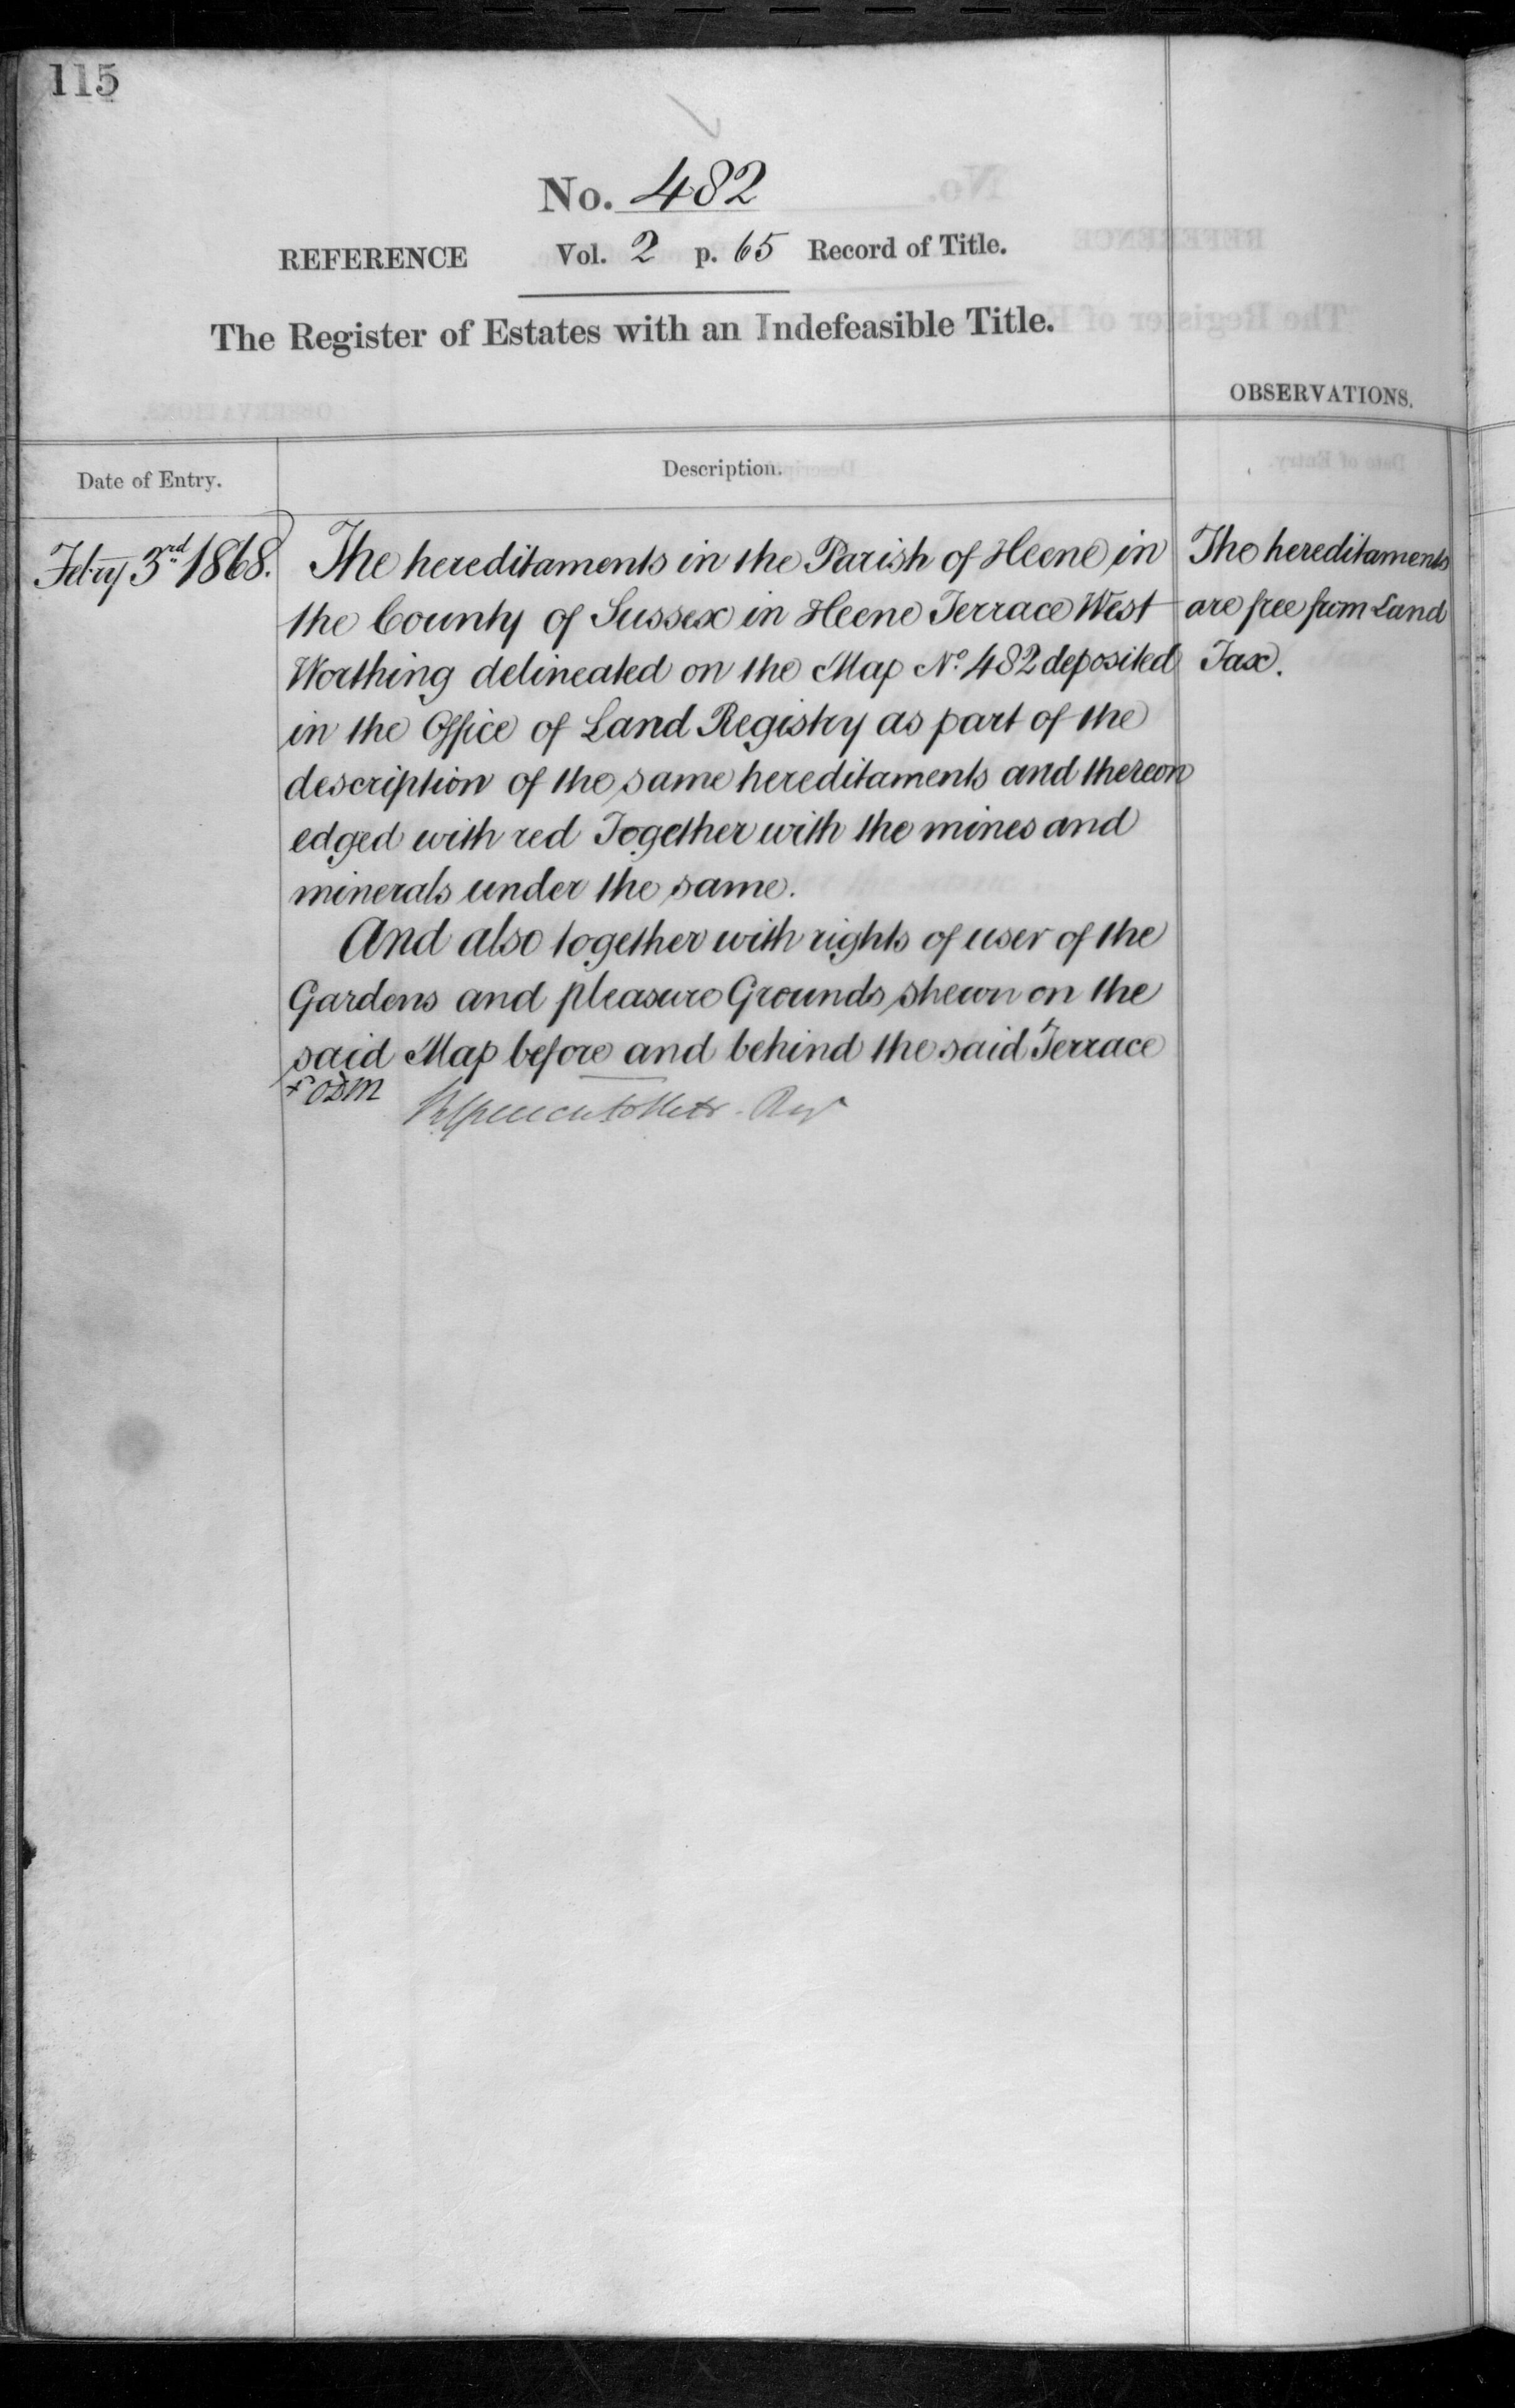 115
No. 482
REFERENCE Vol. 2 p. 65 Record of Title.
The Register of Estates with an Indefeasible Title.
OBSERVATIONS.
Date of Entry.
Description.
Febry 3rd 1868.
The hereditaments in the Parish of Heene in
the County of Sussex in Heene Terrace West
Worthing delineated on the Map No. 482 deposited
in the Office of Land Registry as part of the
description of the same hereditaments and thereon
edged with red Together with the mines and
minerals under the same.
And also together with rights of user of the
Gardens and pleasure Grounds shewn on the
said Map before and behind the said Terrace
The hereditaments
are free from Land
Tax.